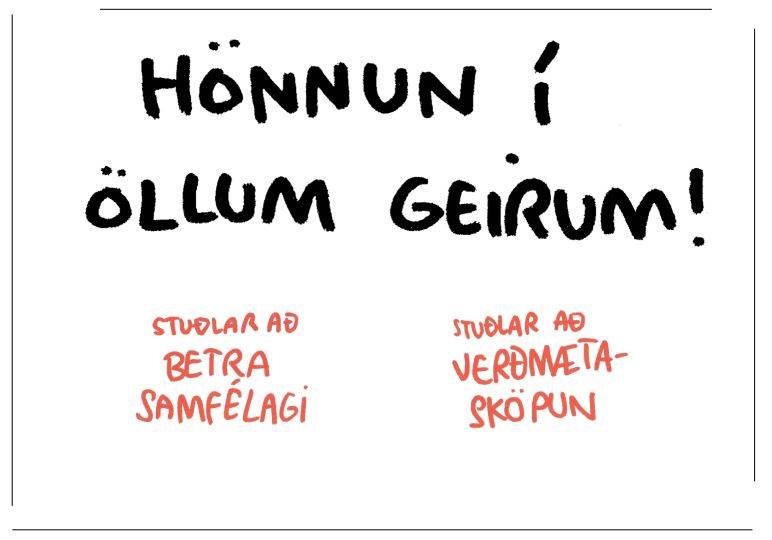 HÖNNUN Í
ÖLLUM GEIRUM!
STUÐLAR AÐ
BETRA
SAMFÉLAGI
STUÐLAR AÐ
VERÐMÆTA-
SKÖPUN